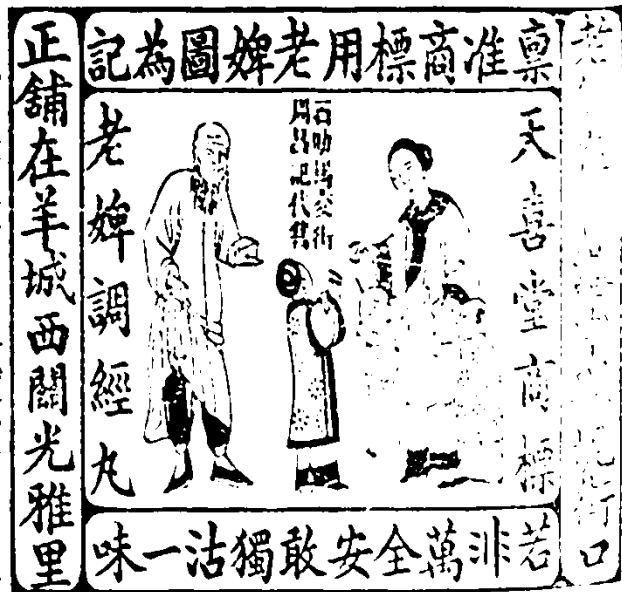 稟准商標用老婢圖為記
老街口
天喜堂商標
石叻馬交街
周昌記代售
老婢調經丸
若非萬全安敢獨沽一味
正舖在羊城西關光雅里